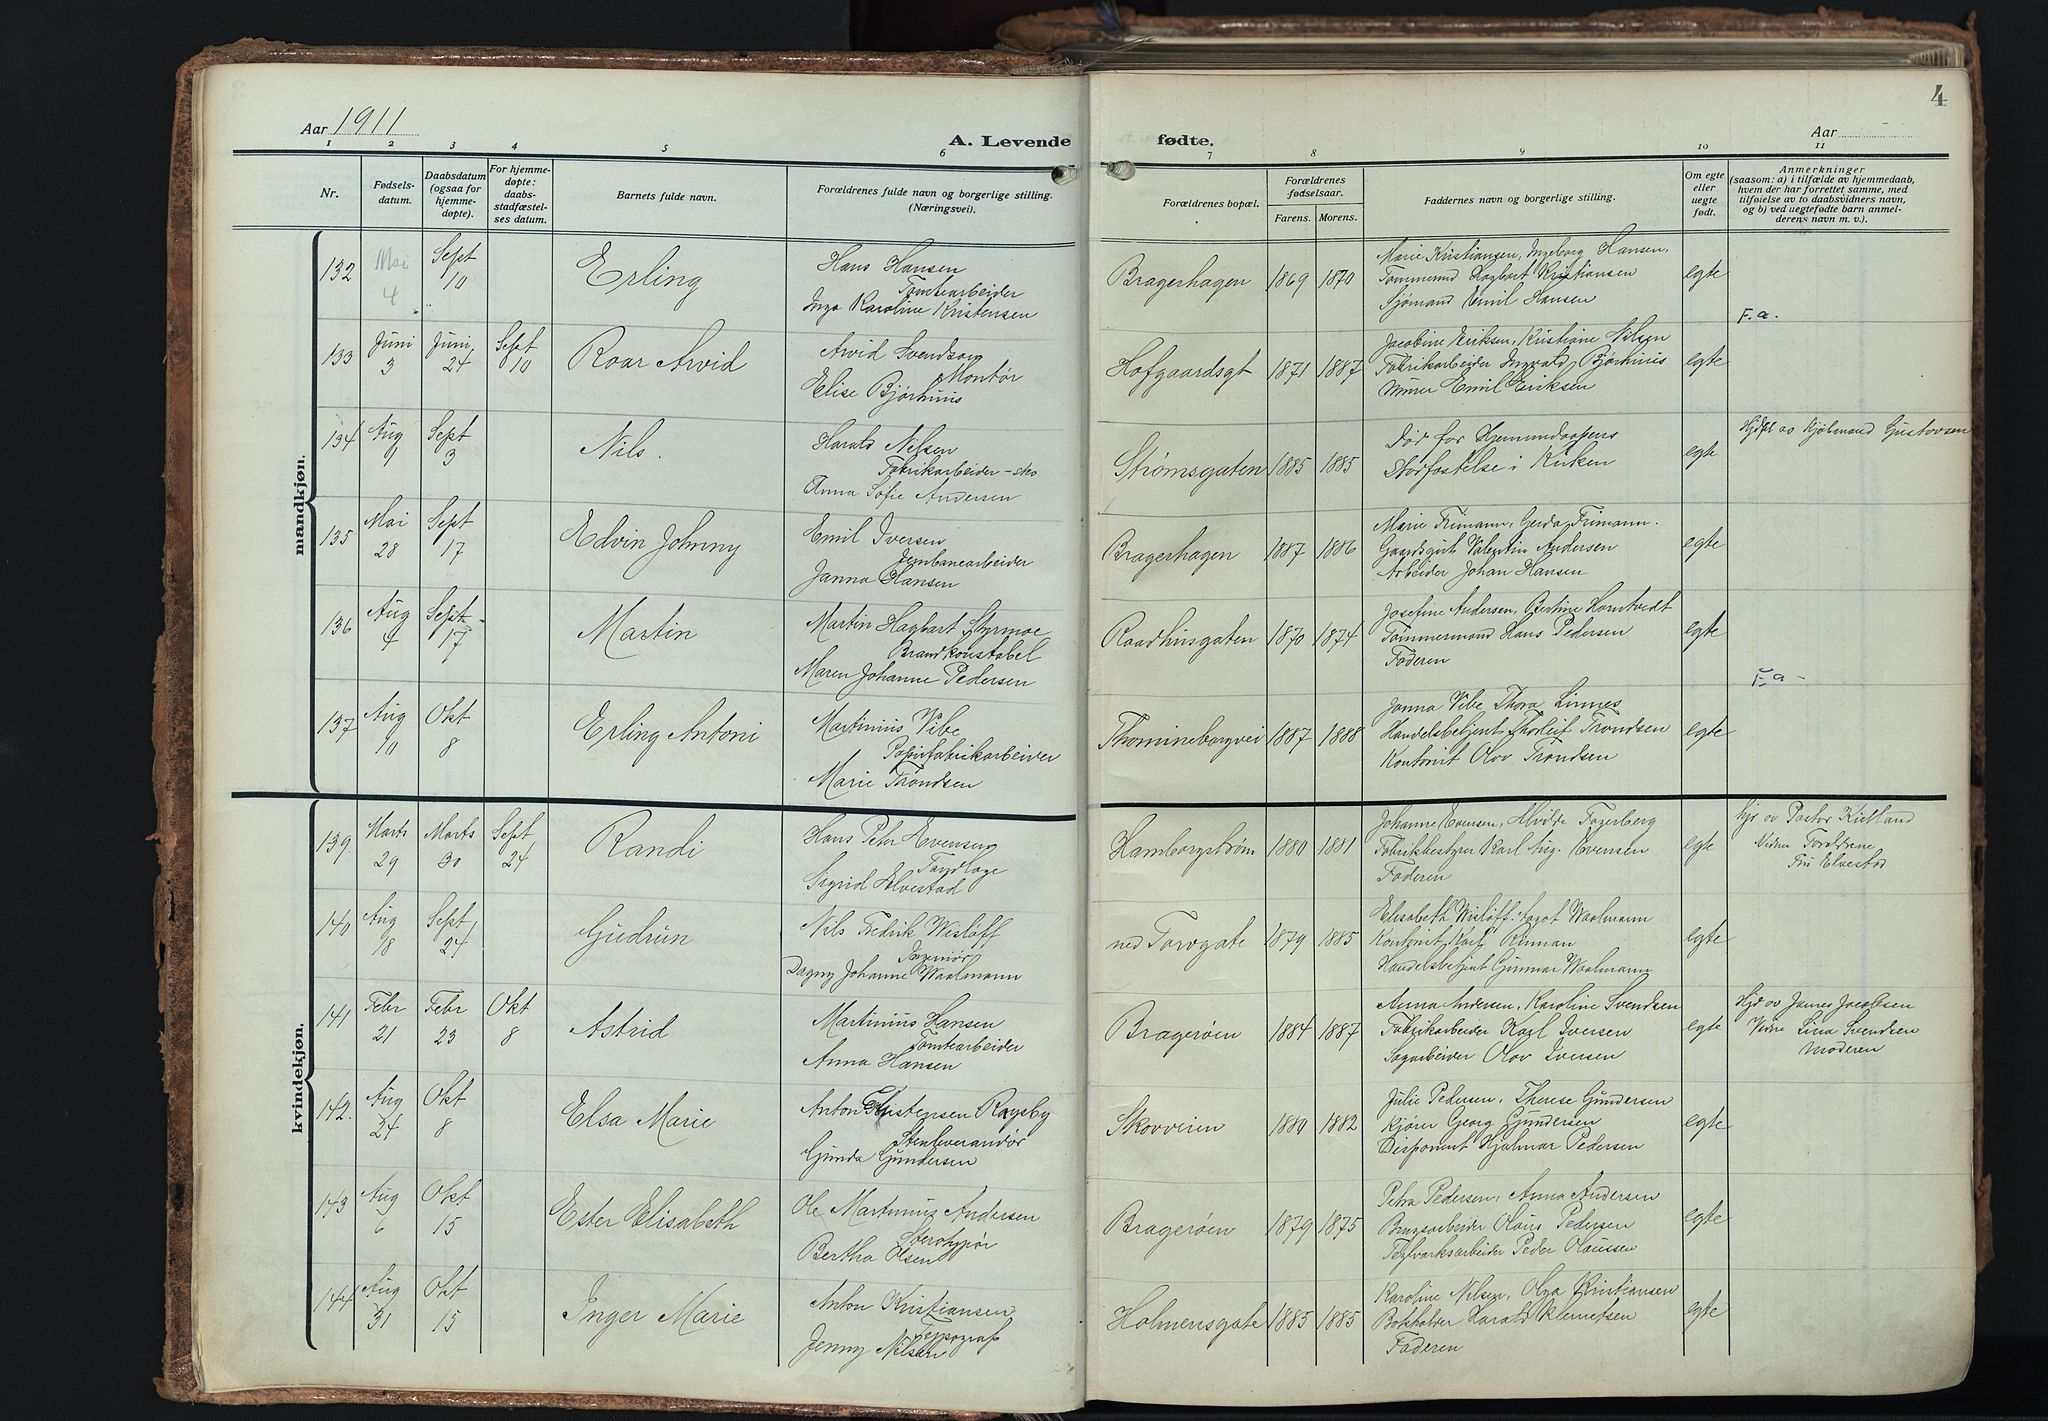 4
Aar 1911
A. Levende fødte.
Aar
1 2 3 4 5 6 7 8 9 10 11
Nr.
Fødsels-datum.
Daabsdatum (ogsaa for hjemme-døpte).
For hjemme-døpte: daabs-stadfæstel-ses datum.
Barnets fulde navn.
Forældrenes fulde navn og borgerlige stilling. (Næringsvei).
Forældrenes bopæl.
Forældrenes fødselsaar.
Farens. Morens.
Faddernes navn og borgerlige stilling.
Om egte eller uegte født.
Anmerkninger
(saasom: a) i tilfælde av hjemmedaab, hvem der har forrettet samme, med tilføielse av to daabsvidners navn, og b) ved uegtefødte barn anmel-derens navn m. v.).
mandkjøn.
132 Mai 4 Sept 10 Erling
Hans Hansen
Tomtearbeider
Inga Karoline Kristensen
Bragerhagen 1869 1870
Marie Kristiansen, Ingeborg Hansen,
Tømmermand Hagbart Kristiansen
Sjømand Emil Hansen
egte
F.a.
133 Juni 3 Juni 24 Sept 10 Roar Arvid
Arvid Svendsen
Montør
Elise Bjørhuus
Hofgaardsgt 1871 1887
Jacobine Eriksen, Kristiane Nilsen
Fabrikarbeider Ingvald Bjørhuus
Murer Emil Eriksen
egte
134 Aug 9 Sept 3 Nils.
Harald Nilsen
Fabrikarbeider
Anna Sofie Andersen
Strømsgaten 1885 1885
Død før Hjemmedaapens
Stadfestelse i Kirken
egte
av Gustavsen
135 Mai 28 Sept 17 Edvin Johnny
Emil Iversen
Jernbanearbeider
Janna Hansen
Bragerhagen 1887 1886
Marie Frimann, Gerda Frimann.
Gaardsgut Valentin Andersen
Arbeider Johan Hansen
egte
136 Aug 4 Sept 17 Martin
Martin Hagbart Styrmoe
Brandkonstabel
Maren Johanne Pedersen
Raadhusgaten 1870 1874
Josefine Andersen, Bertine Horntvedt
Tømmermand Hans Pedersen
Faderen
egte
F.a -
137 Aug 10 Okt 8 Erling Antoni
Martinius Vibe
Papirfabrikarbeider
Marie Trondsen
Thomineborgvei 1887 1888
Janna Vibe Thora Linnes
Handelsbetjent Thorleif Trondsen
Kontorist Olav Trondsen
egte
kvindekjøn.
139 Marts 29 Marts 30 Sept 24 Randi
Hans Peter Evensen
Tandlæge
Sigrid Elvestad
Hamborgstrøm 1880 1881
Johanne Evensen, Alvilde Fagerberg
Fabrikbestyrer Karl Aug. Evensen
Faderen
egte
hjd av Pastor Kielland
Vidne Forældrene
Fru Elvestad
140 Aug 18 Sept 24 Gudrun
Nils Fredrik Wisløff
Ingeniør
Dagny Johanne Waalmann
ned Torvgate 1879 1885
Elisabeth Wisløff. Aagot Waalmann
Kontorist Karl Rinnan
Handelsbetjent Gunnar Waalmann
egte
141 Febr 21 Febr 23 Okt 8 Astrid
Martinius Hansen
Tomtearbeider
Anna Hansen
Bragerøen 1884 1887
Anna Andersen, Karoline Svendsen
Fabrikarbeider Karl Iversen
Sagarbeider Olav Iversen
egte
Hjd av James Jacobsen
Vidne Lina Svendsen
Moderen
142. Aug 24 Okt 8 Elsa Marie
Anton Kristensen Røysby
Stenleverandør
Gunda Gundersen
Skovveien 1880 1882
Julie Pedersen, Therese Gundersen
Kjører Georg Gundersen
Disponent Hjalmar Pedersen
egte
143 Aug 6 Okt 15 Ester Elisabeth
Ole Martinius Andersen
Sterotypør
Bertha Olsen
Bragerøen 1879 1875
Petra Pedersen, Anna Andersen
Brugsarbeider Olaus Pedersen
Teglverksarbeider Peder Olaussen
egte
144 Aug 31 Okt 15 Inger Marie
Anton Kristiansen
Typograf
Jenny Nilsen
Holmensgate 1885 1885
Karoline Nilsen, Olga Kristiansen
Bokholder Harald Klemetsen
Faderen
egte